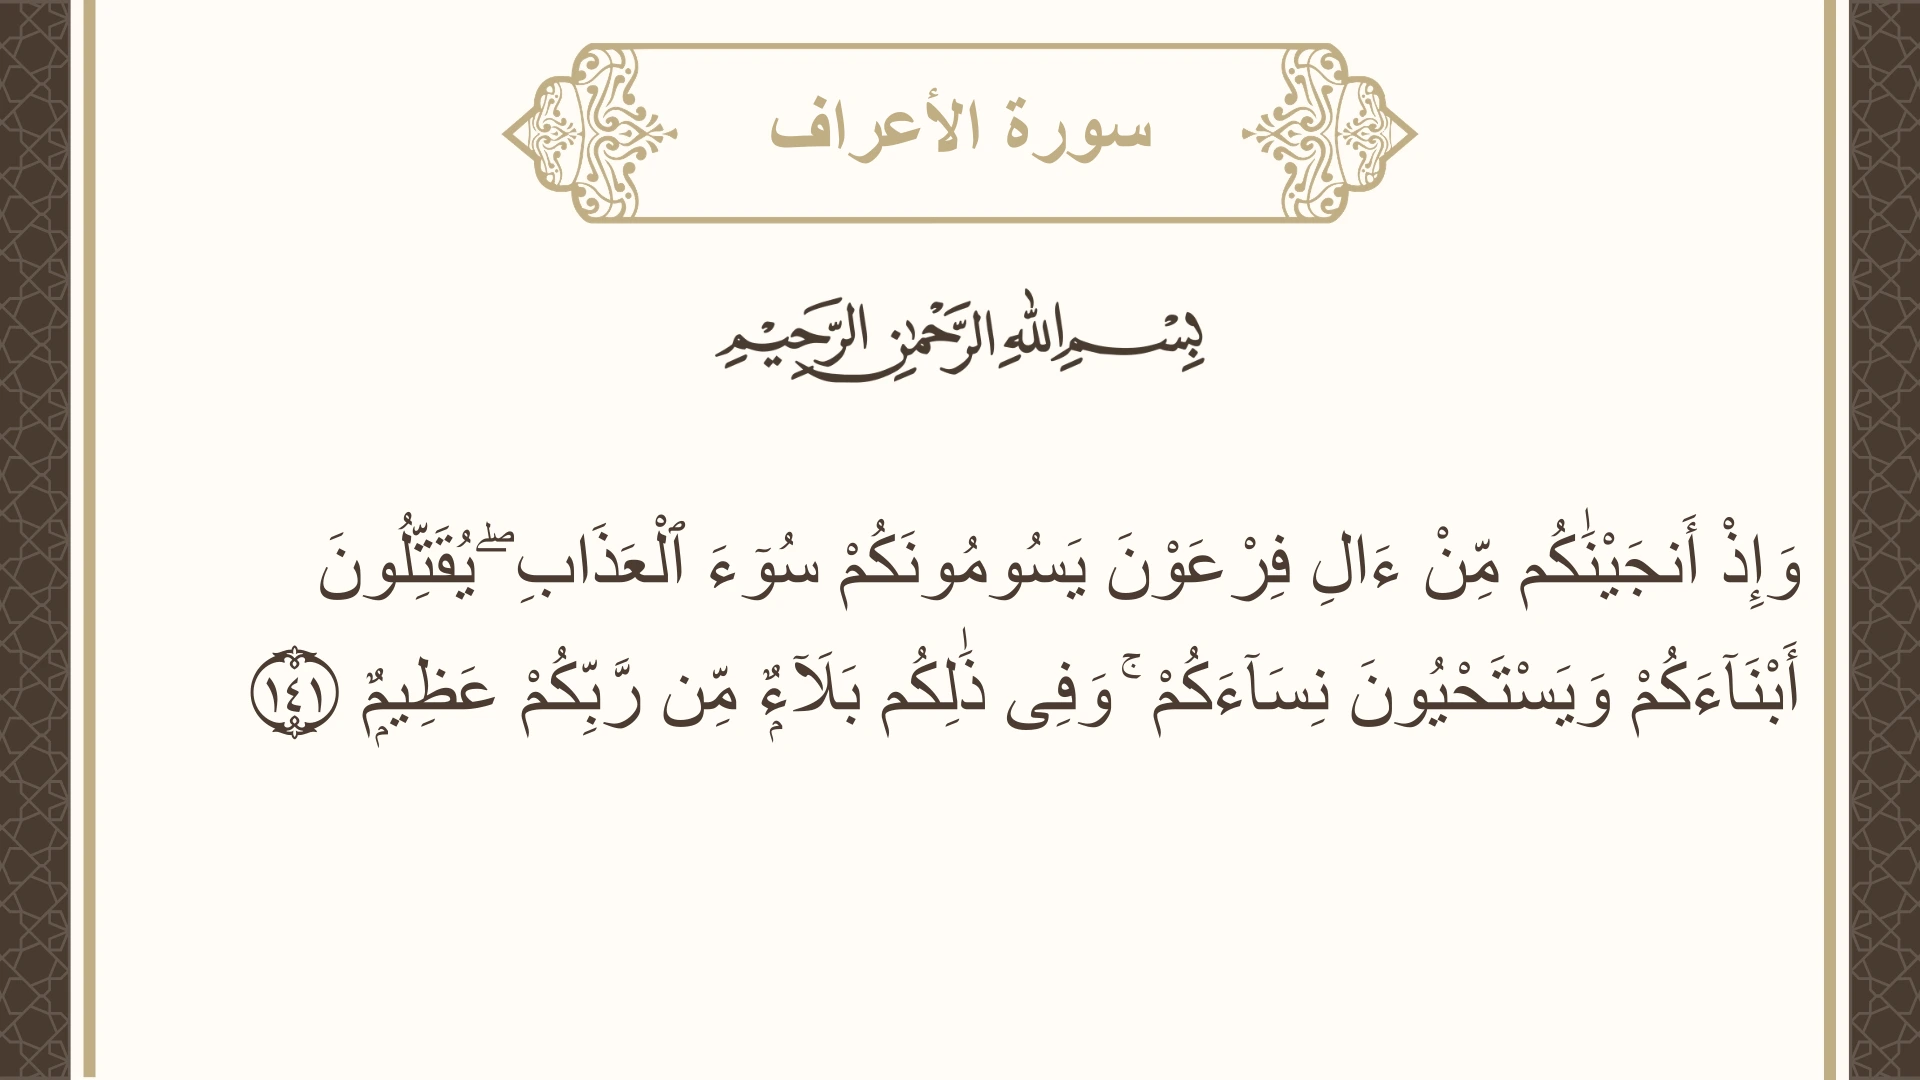 سورة الأعراف
بِسْمِ اللهِ الرَّحْمٰنِ الرَّحِيْمِ
وَإِذْ أَنجَيْنَٰكُم مِّنْ ءَالِ فِرْعَوْنَ يَسُومُونَكُمْ سُوٓءَ ٱلْعَذَابِ ۖ يُقَتِّلُونَ
أَبْنَآءَكُمْ وَيَسْتَحْيُونَ نِسَآءَكُمْ ۚ وَفِى ذَٰلِكُم بَلَآءٌۭ مِّن رَّبِّكُمْ عَظِيمٌۭ ١٤١